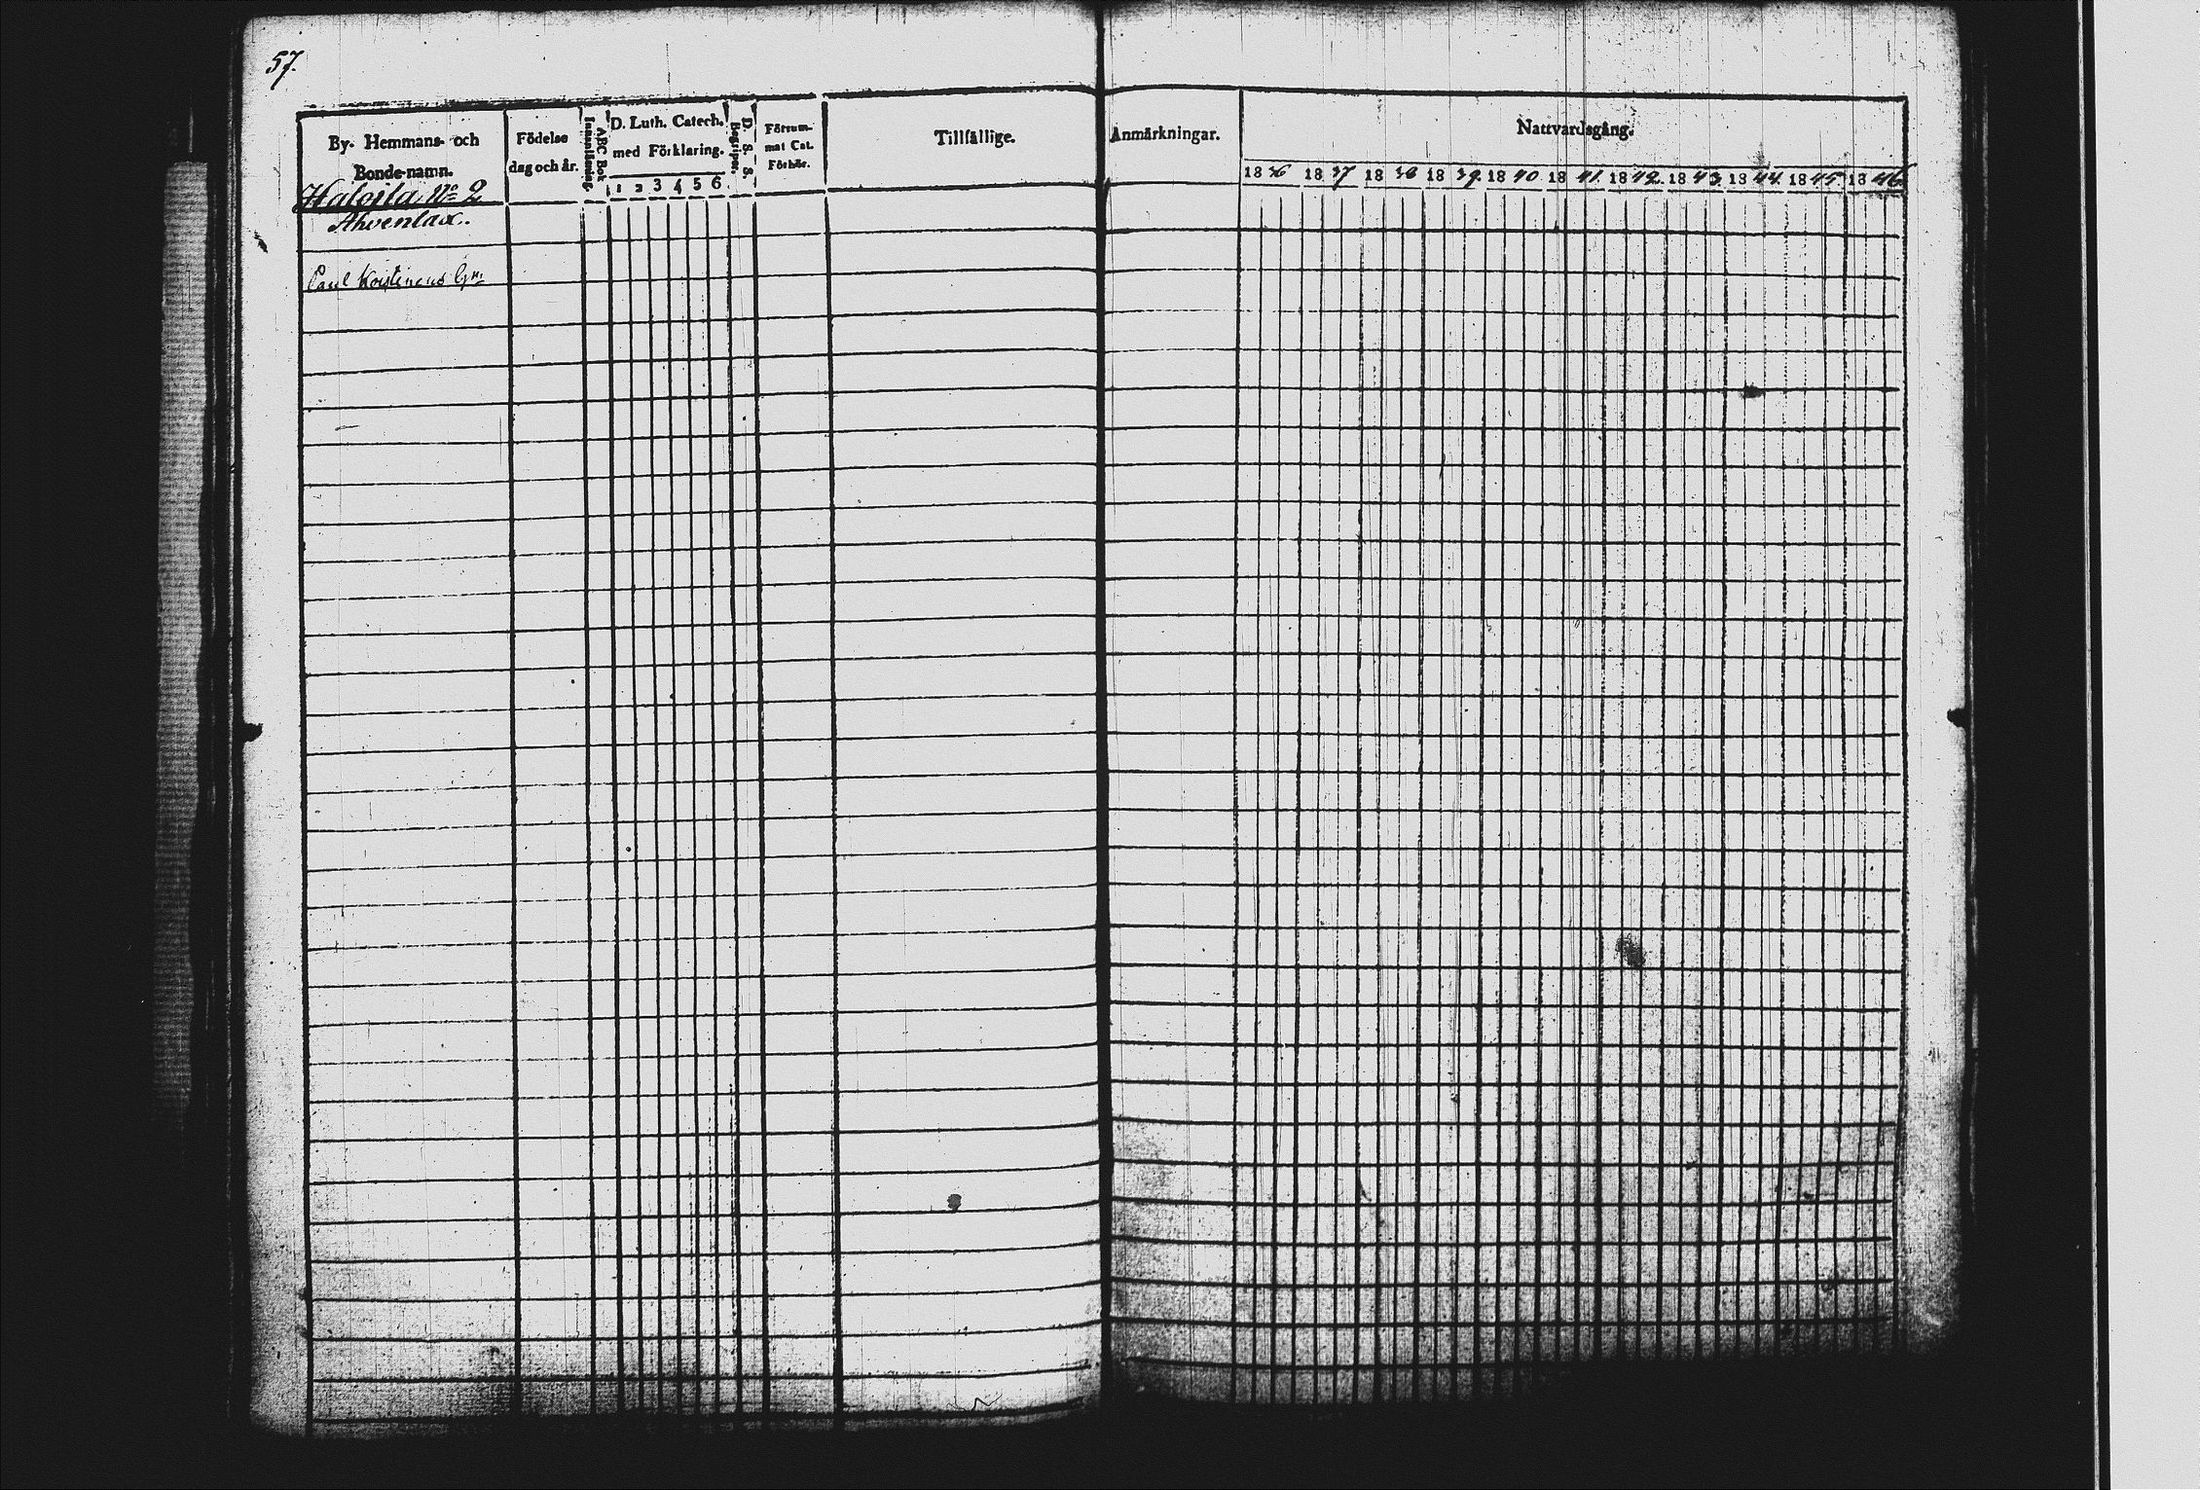 57.
By- Hemmans- och
Bonde-namn.
Födelse
dag och år.
ABC Bok
Innanläsning.
D. Luth. Catech.
med Förklaring.
1 2 3 4 5 6
D. S. S.
Begriper.
Försum-
mat Cat.
Förhör.
Tillfällige.
Anmärkningar.
Nattvardsgång.
1836 1837 1838 1839. 1840 1841. 1842. 1843 1844. 1845 1846
Haloila, No 2
Ahvenlax.
Paul Koistinens